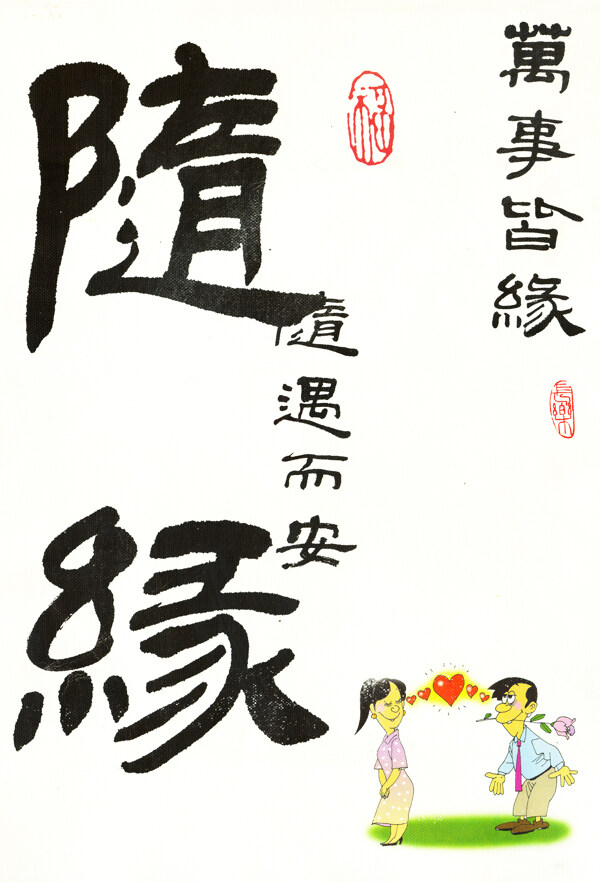 萬事皆緣
隨遇而安
隨緣
長樂